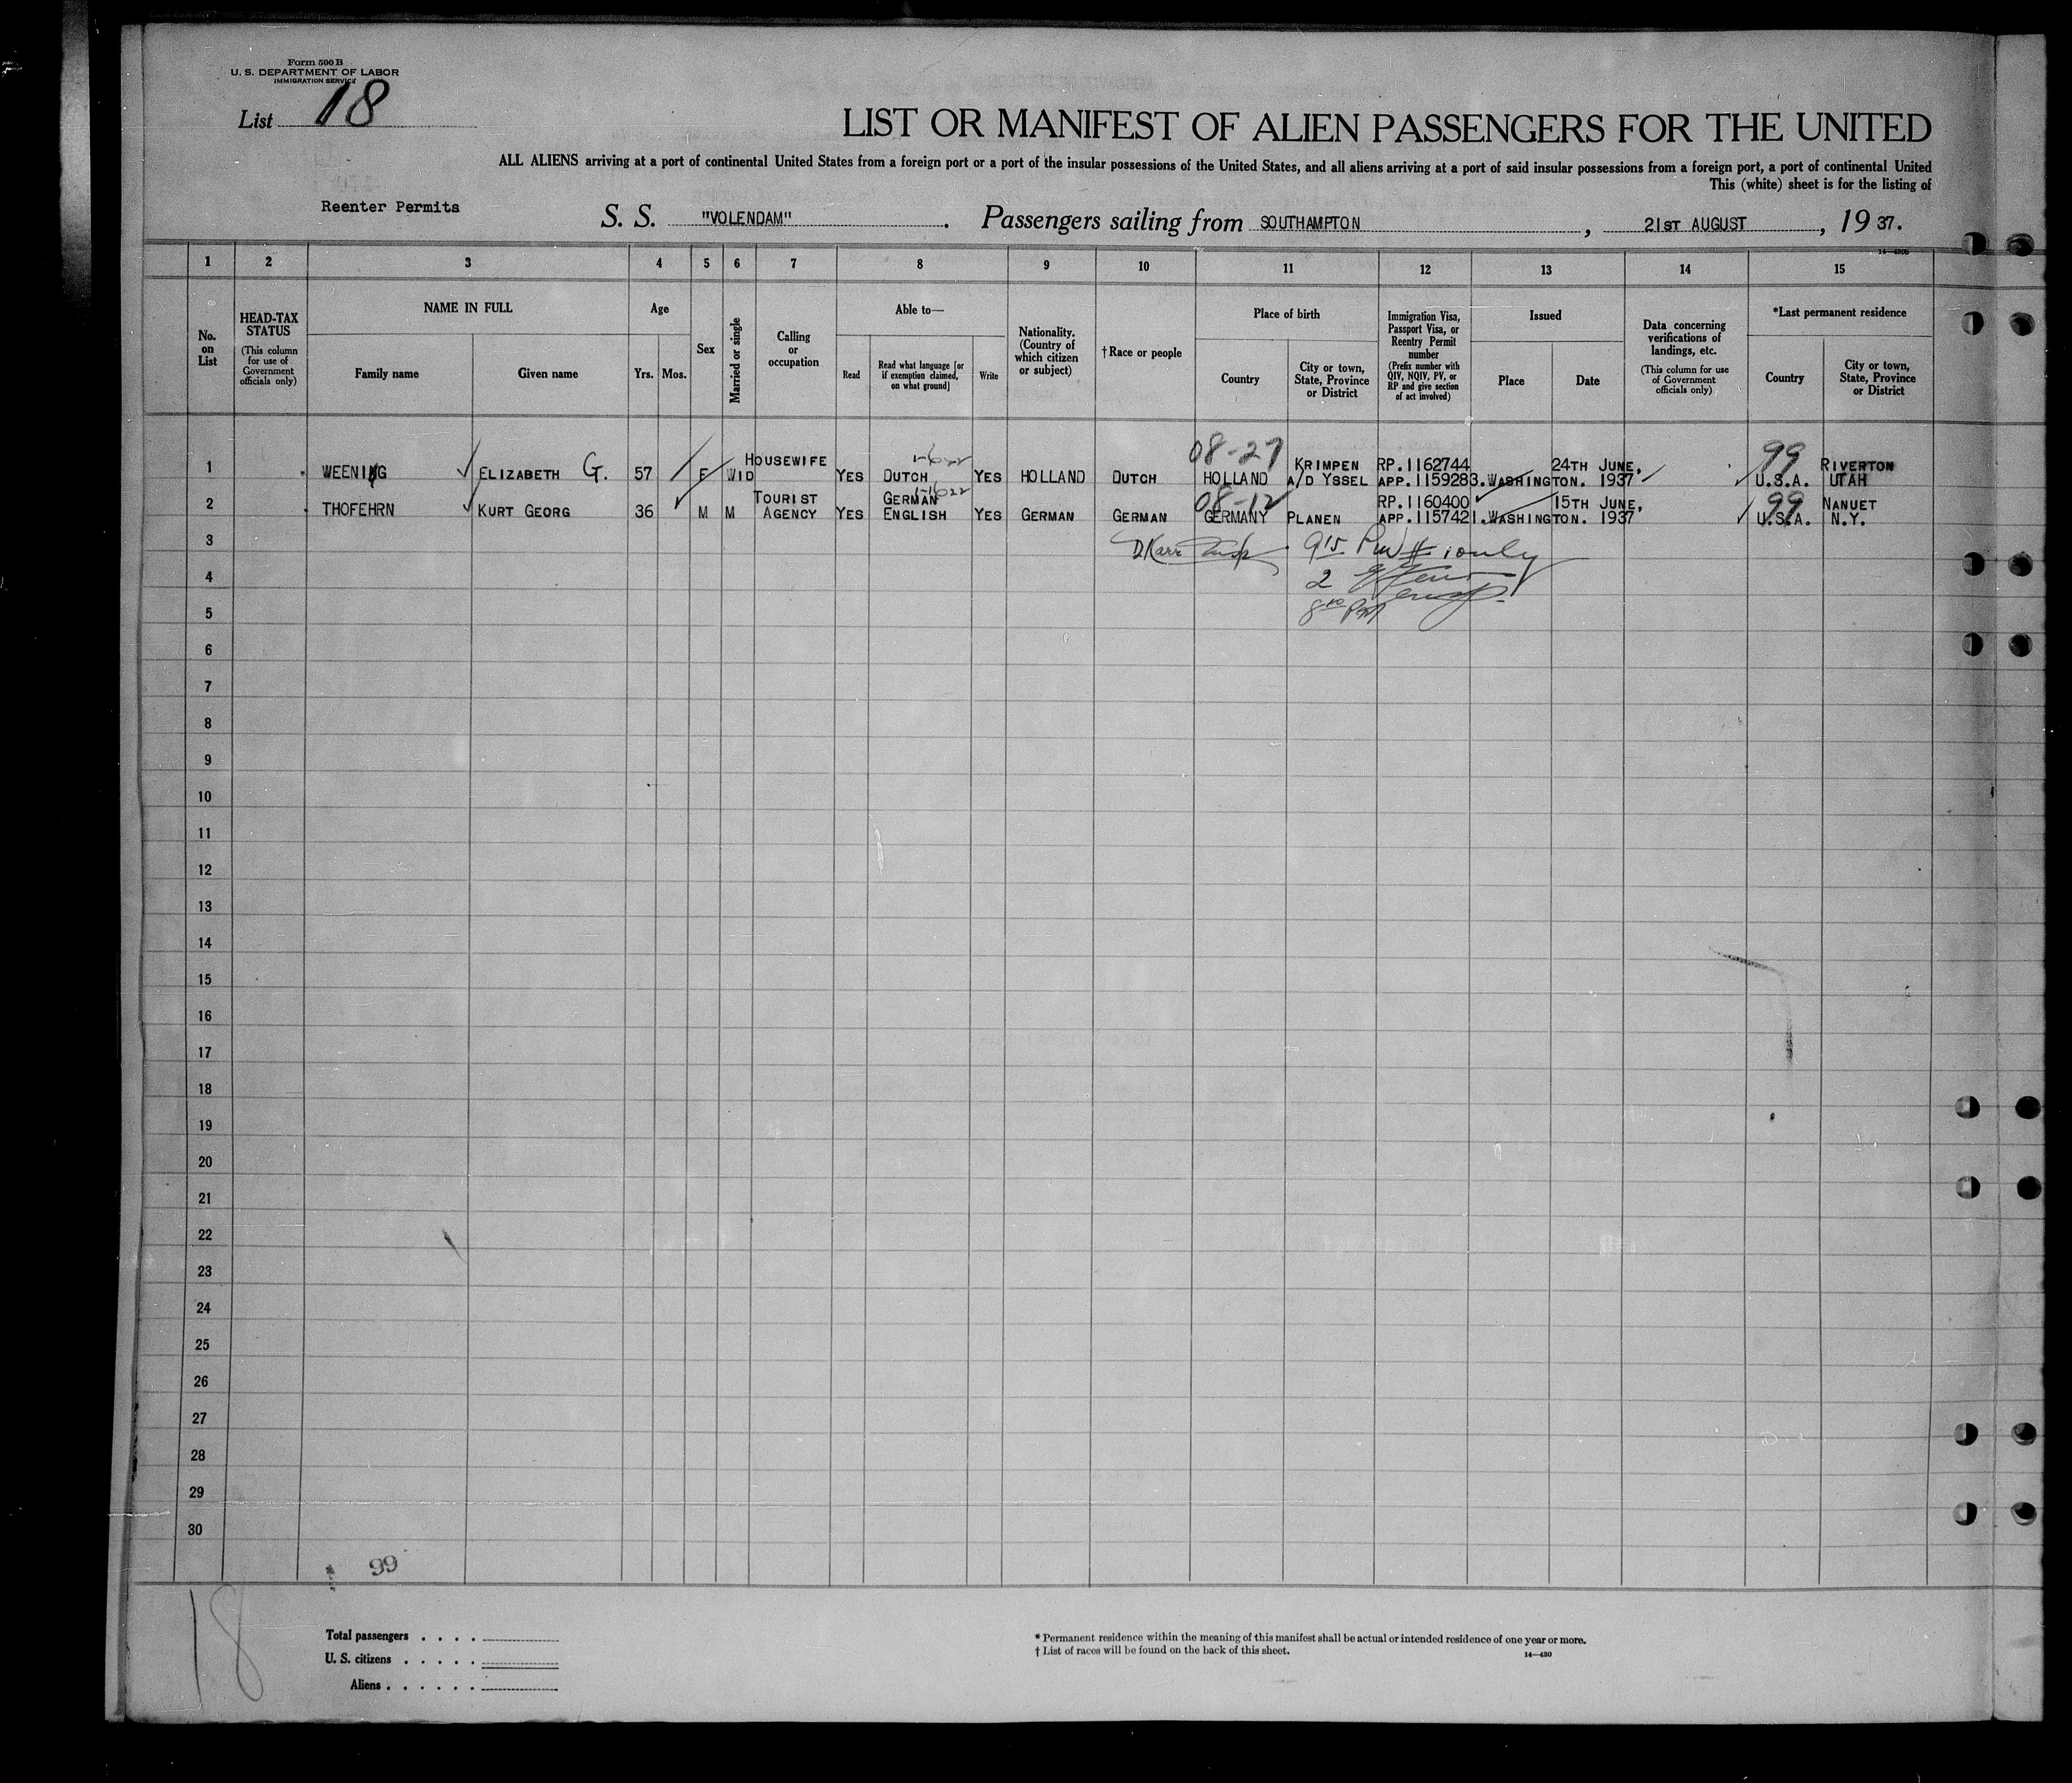 Form 500 B
U. S. DEPARTMENT OF LABOR
IMMIGRATION SERVICE
List 18
LIST OR MANIFEST OF ALIEN PASSENGERS FOR THE UNITED
ALL ALIENS arriving at a port of continental United States from a foreign port or a port of the insular possessions of the United States, and all aliens arriving at a port of said insular possessions from a foreign port, a port of continental United
This (white) sheet is for the listing of
Reenter Permits
S. S. "VOLENDAM". Passengers sailing from SOUTHAMPTON, 21ST AUGUST, 1937.
1 2 3 4 5 6 7 8 9 10 11 12 13 14 15
No. on List
HEAD-TAX STATUS
(This column for use of Government officials only)
NAME IN FULL
Family name
Given name
Age
Yrs.
Mos.
Sex
Married or single
Calling or occupation
Able to—
Read
Read what language [or if exemption claimed, on what ground]
Write
Nationality. (Country of which citizen or subject)
†Race or people
Place of birth
Country
City or town, State, Province or District
Immigration Visa, Passport Visa, or Reentry Permit number
(Prefix number with QIV, NQIV, PV, or RP and give section of act involved)
Issued
Place
Date
Data concerning verifications of landings, etc.
(This column for use of Government officials only)
*Last permanent residence
Country
City or town, State, Province or District
08-27 99
HOUSEWIFE KRIMPEN RP.1162744 24TH JUNE, RIVERTON
1 WEENING ELIZABETH G. 57 F WID YES DUTCH YES HOLLAND DUTCH HOLLAND A/D YSSEL APP.1159283. WASHINGTON. 1937 U.S.A. UTAH
08-12 99
TOURIST GERMAN RP.1160400 15TH JUNE, NANUET
2 THOFEHRN KURT GEORG 36 M M AGENCY YES ENGLISH YES GERMAN GERMAN GERMANY PLANEN APP.1157421. WASHINGTON. 1937 U.S.A. N.Y.
3
4
5
6
7
8
9
10
11
12
13
14
15
16
17
18
19
20
21
22
23
24
25
26
27
28
29
30
99
18
Total passengers
U. S. citizens
Aliens
* Permanent residence within the meaning of this manifest shall be actual or intended residence of one year or more.
† List of races will be found on the back of this sheet.
14—430